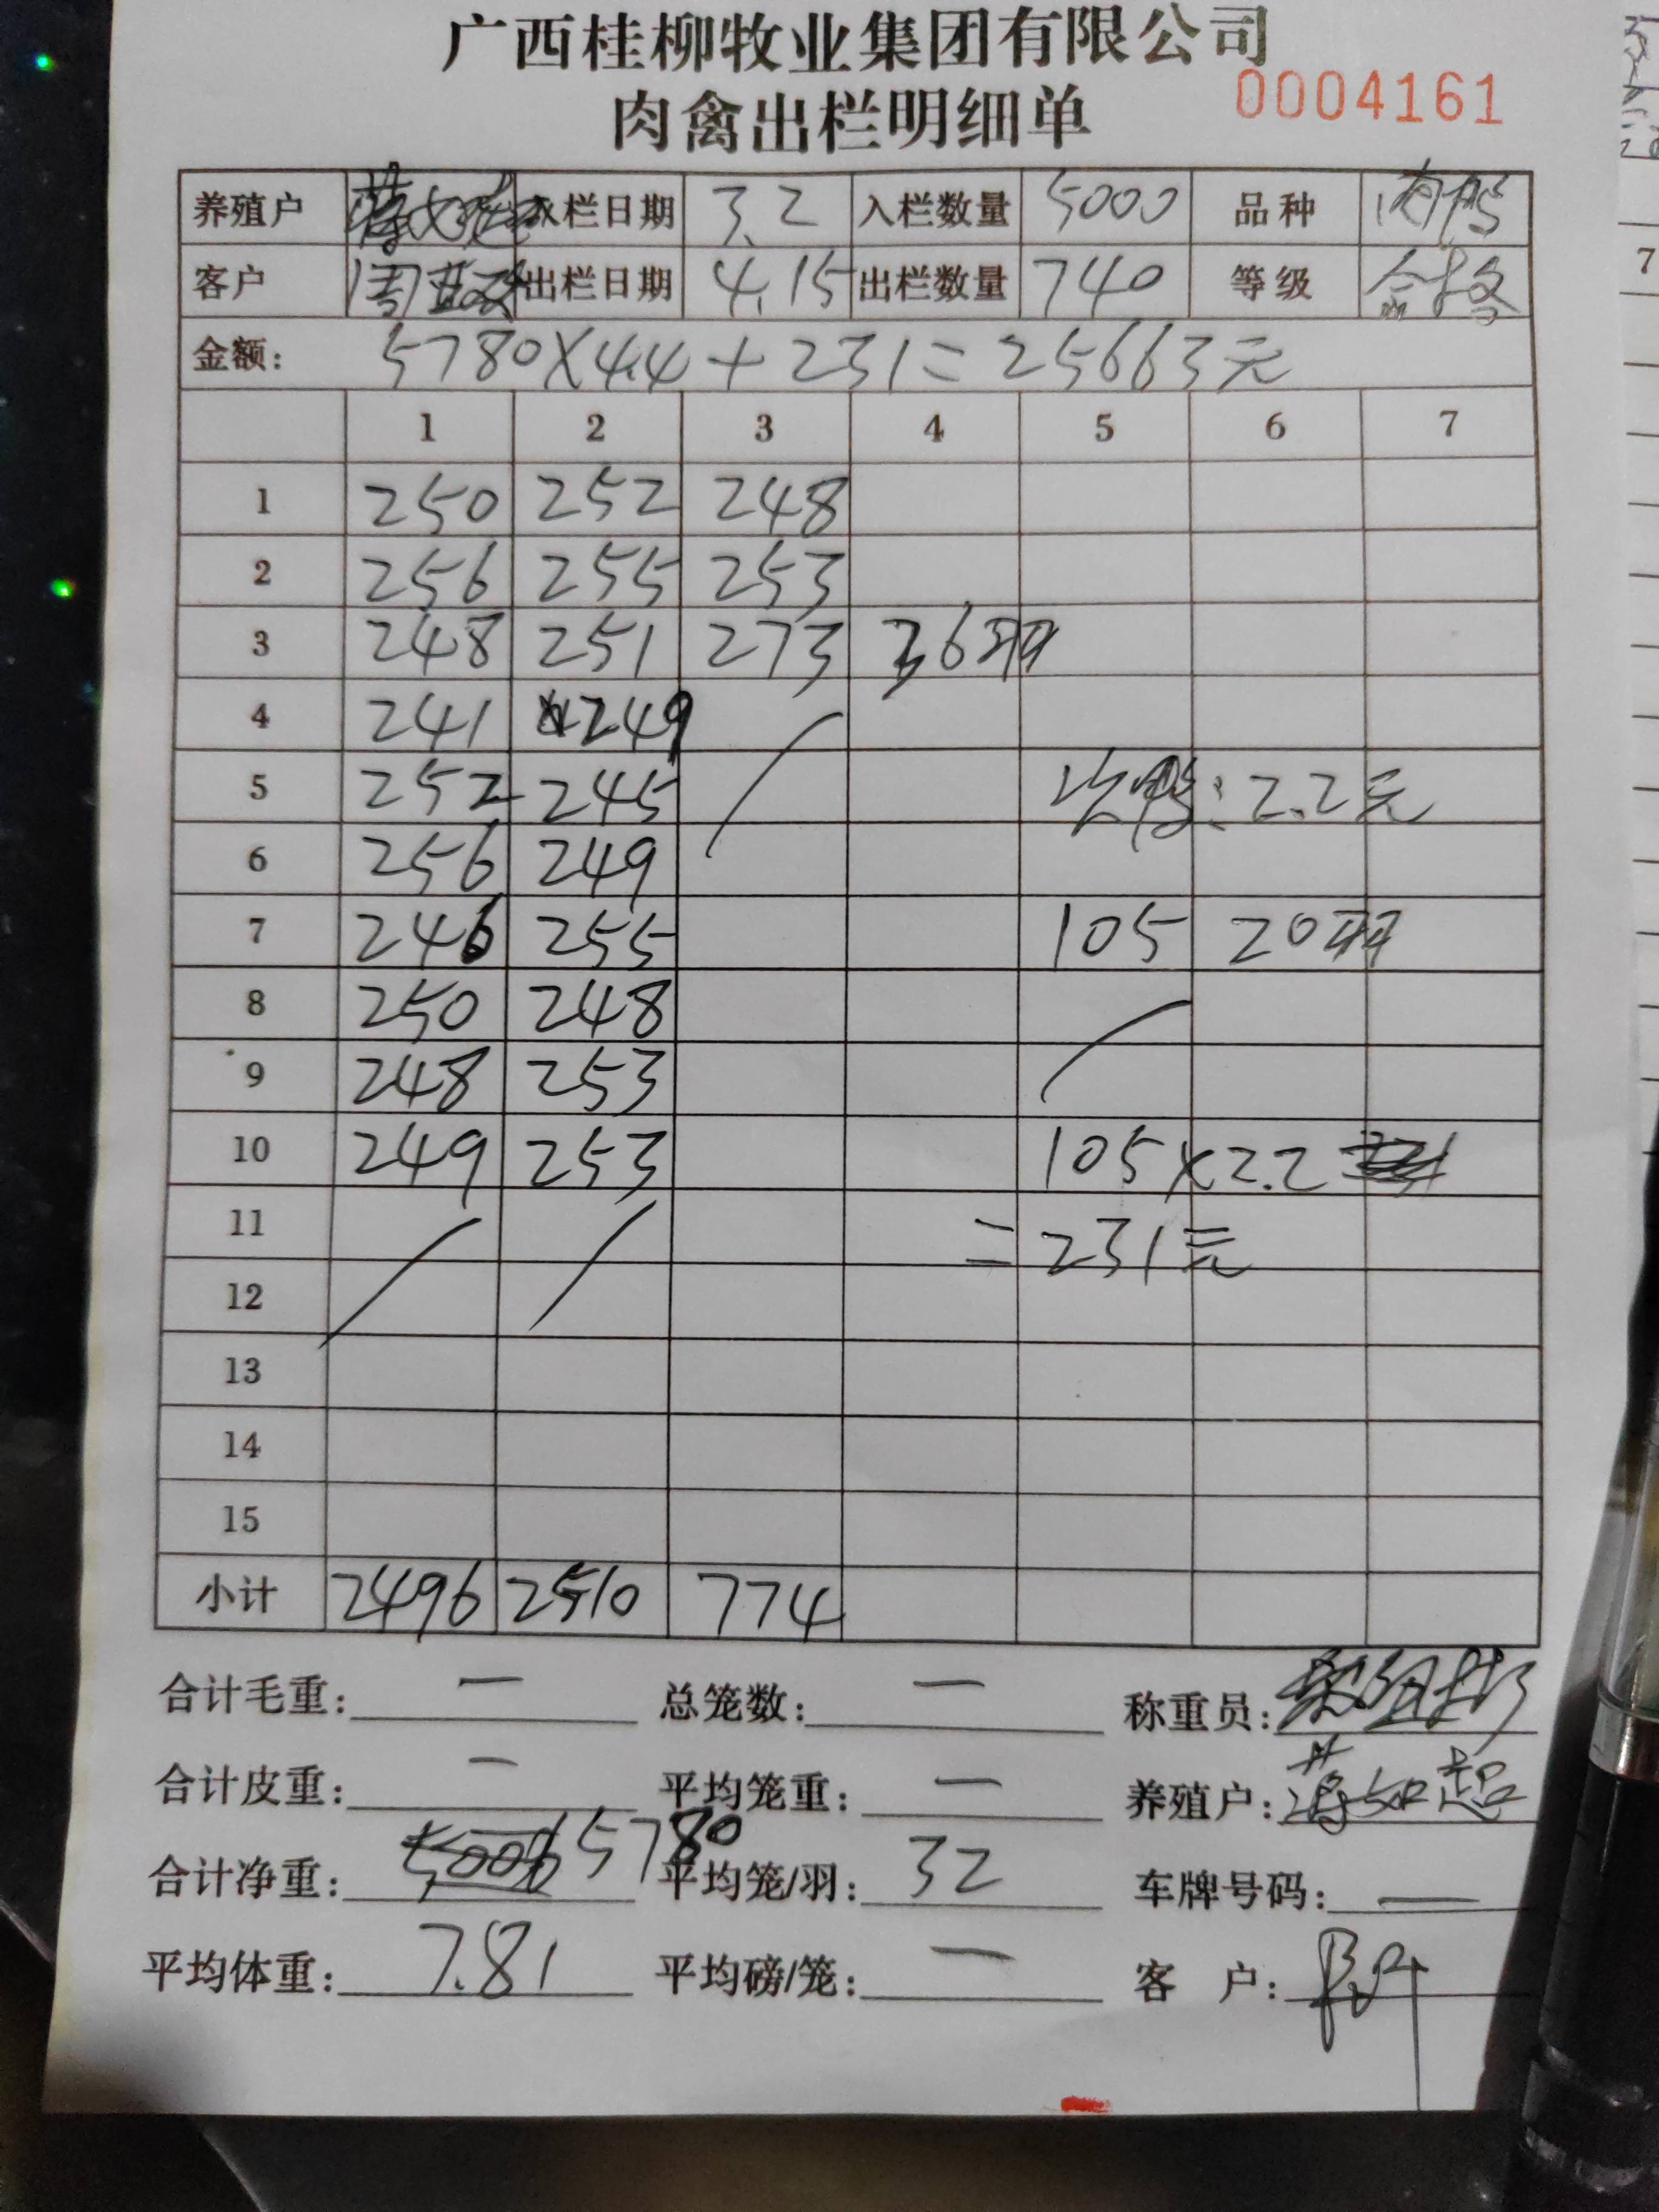 广西桂柳牧业集团有限公司
肉禽出栏明细单 0004161
养殖户 入栏日期 3.2 入栏数量 5000 品种 肉鸭
客户 出栏日期 4.15 出栏数量 740 等级 合格
金额: 5780×4.4+231=25663元
1 2 3 4 5 6 7
1 250 252 248
2 256 255 253
3 248 251 273 36羽
4 241 249
5 252 245 次鸭:2.2元
6 256 249
7 246 255 105 20羽
8 250 248
9 248 253
10 249 253 105×2.2
11 =231元
12
13
14
15
小计 2496 2510 774
合计毛重: — 总笼数: — 称重员:
合计皮重: — 平均笼重: — 养殖户:
合计净重: 5780 平均笼/羽: 32 车牌号码: —
平均体重: 7.81 平均磅/笼: — 客 户: